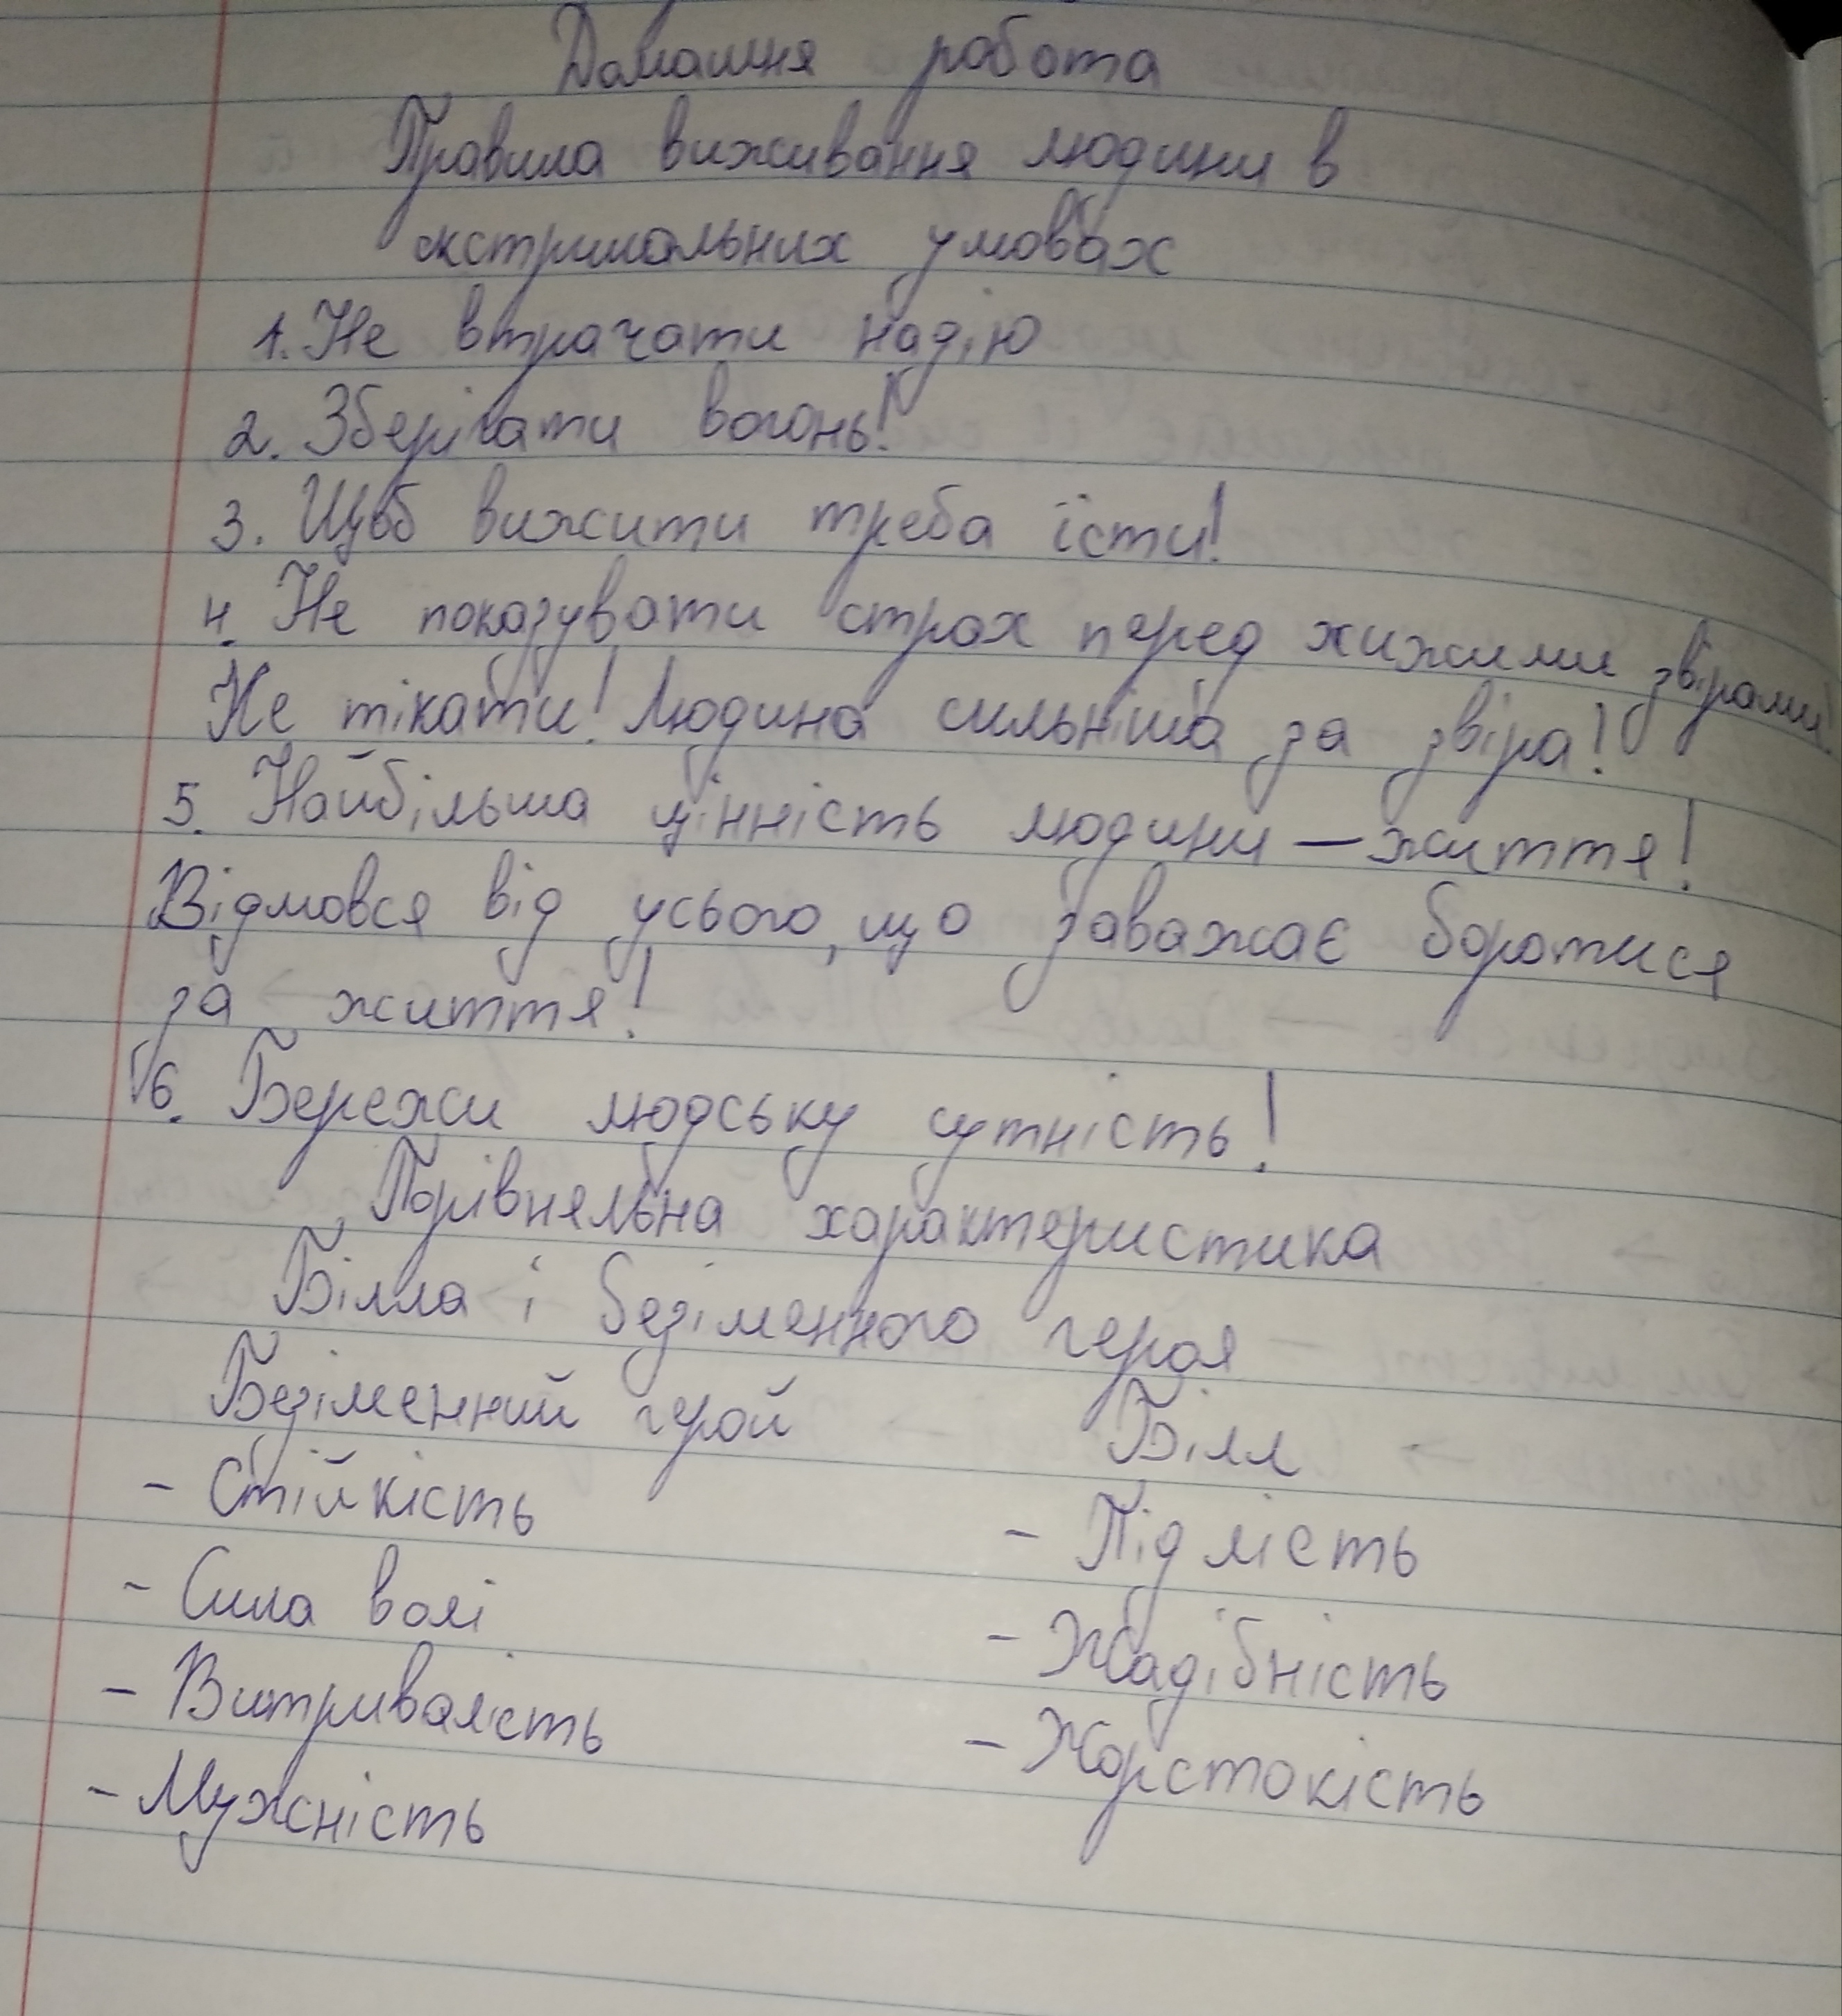 Домашня робота
Правила виживання людини в
екстримальних умовах
1. Не втрачати надію
2. Зберігати вогонь!
3. Щоб вижити треба їсти!
4. Не показувати страх перед хижими звірами!
Не тікати! Людина сильніша за звіра!
5. Найбільша цінність людини – життя!
Відмовся від усього, що заважає боротися
за життя!
6. Бережи людську сутність!
Порівняльна характеристика
Білла і безіменного героя
Безіменний герой Білл
- Стійкість - Підлість
- Сила волі - Жадібність
- Витривалість - Жорстокість
- Мужність